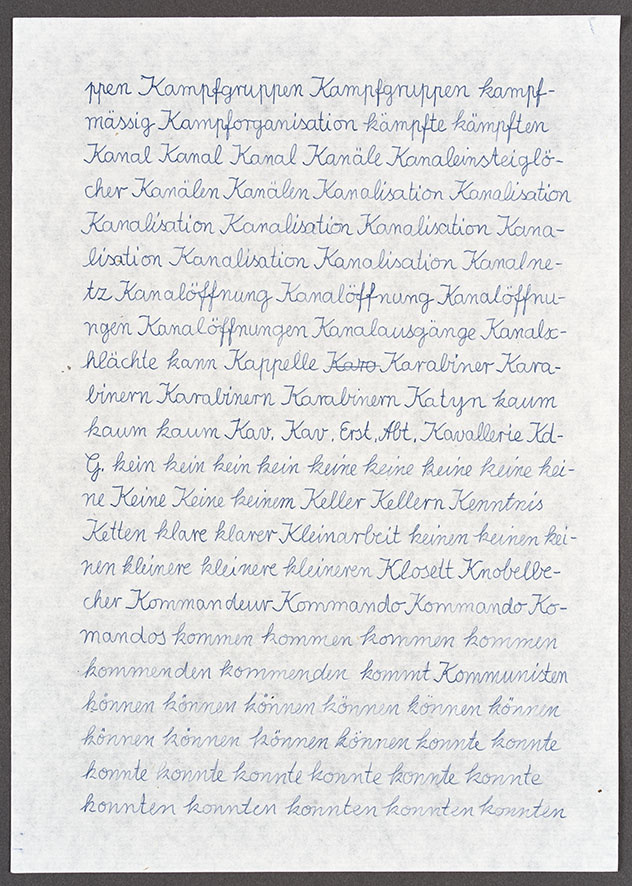 ppen Kampfgruppen Kampfgruppen kampf-
mässig Kampforganisation kämpfte kämpften
Kanal Kanal Kanal Kanäle Kanaleinsteiglö-
cher Kanälen Kanälen Kanalisation Kanalisation
Kanalisation Kanalisation Kanalisation Kana-
lisation Kanalisation Kanalisation Kanalne-
tz Kanalöffnung Kanalöffnung Kanalöffnu-
ngen Kanalöffnungen Kanalausgänge Kanalsc-
hlächte kann Kappelle Karo Karabiner Kara-
binern Karabinern Karabinern Katyn kaum
kaum kaum Kav. Kav. Erst. Abt. Kavallerie Kd-
G. kein kein kein kein keine keine keine keine kei-
ne Keine Keine keinem Keller Kellern Kenntnis
Ketten klare klarer Kleinarbeit keinen keinen kei-
nen kleinere kleinere kleineren Klosett Knobelbe-
cher Kommandeur Kommando Kommando Ko-
mandos kommen kommen kommen kommen
kommenden kommenden kommt Kommunisten
können können können können können können
können können können können konnte konnte
konnte konnte konnte konnte konnte konnte
konnten konnten konnten konnten konnten